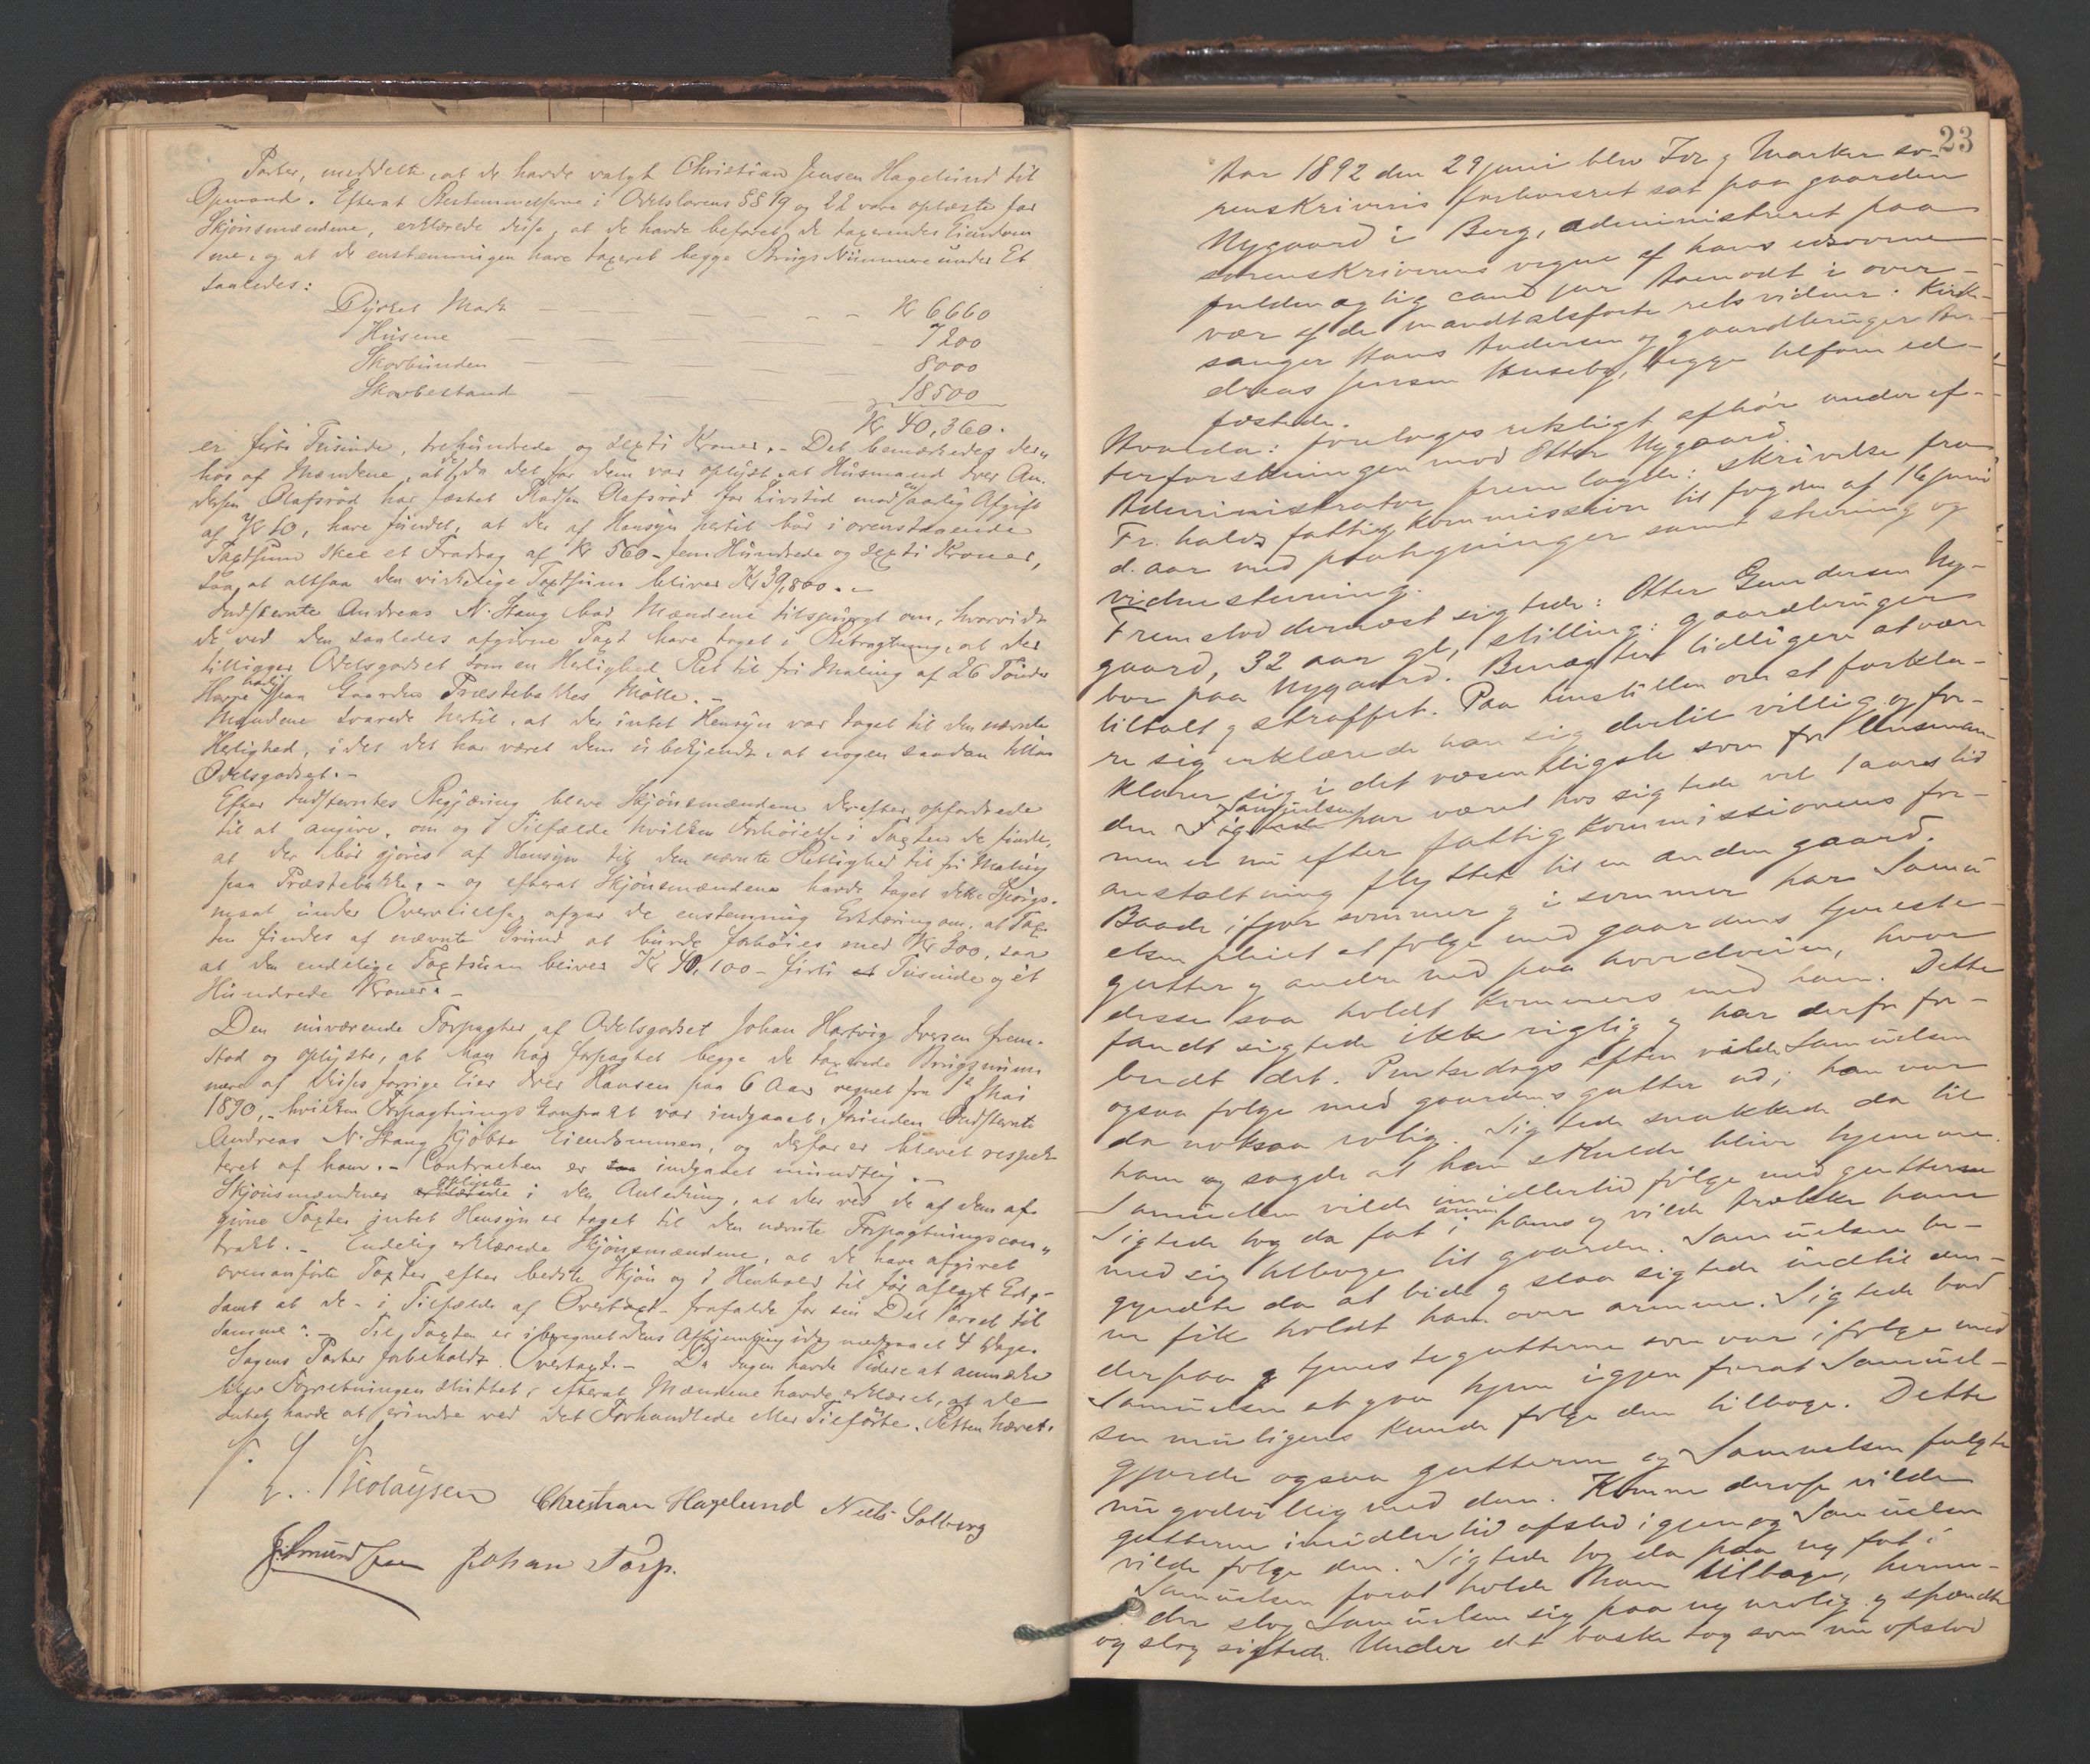 Parter, meddelte, at de havde valgt Christian Jensen Hagelund til
Opmand. Efterat Bestemmelserne i Odelslovens §§ 19 og 22 vare oplæste for
Skjönsmændene, erklærede disse, at de havde befaret de taxerendes Eiendom
me, og at de enstemmigen have taxeret begge Brugs Nummere under Et
saaledes:
Dyrket Mark — — — — — Kr 6660
Husene — — — — 7200
Skovbunden — — — — 8000
Skovbestand — — — — 18500
Kr 40,360.
er firti Tusinde, trehundrede og sexti Kroner. – Det bemærkedes des„
hos af Mændene, at de, da det for dem var oplyst, at Husmand Iver An„
dersen Olafsröd har fæstet Pladsen Olafsröd for Livstid mod aarlig Afgift
af Kr 10, have fundet, at der af Hensyn hertil bör i ovenstaaende
Taxtsum skee et Fradrag af Kr 560 – fem Hundrede og sexti Kroner,
saa, at altsaa den virkelige Taxtsum bliver Kr 39,800. –
Indstevnte Andreas N. Stang bad Mændene tilspurgt om, hvorvidt
de ved den saaledes afgivne Taxt have taget i Betragtning, at der
tilligger Odelsgodset som en Herlighed Ret til fri Maling af 26 Tönder
Havre aarlig paa Gaarden Præstebakkes Mölle. –
Mændene svarede hertil, at der intet Hensyn var taget til den nævnte
Herlighed, i det det har været dem ubekjendt, at nogen saadan tillaa
Odelsgodset. –
Efter Indstevntes Begjæring bleve Skjönsmændene derefter opfordrede
til at angive, om og i Tilfælde hvilken Forhöielse i Taxten de finde,
at der bör gjöres af Hensyn til den nævnte Rettighed til fri Maling
paa Præstebakke, – og efterat Skjönsmændene havde taget dette Spörgs-
maal under Overveielse, afgav de enstemmig Erklæring om, at Tax-
ten findes af nævnte Grund at burde forhöies med Kr 300, saa
at den endelige Taxtsum bliver Kr 40,100 – firti Tusinde og ét
Hundrede Kroner. –
Den nuværende Forpagter af Odelsgodset Johan Hartvig Iversen frem-
stod og oplyste, at han har forpagtet begge de taxerede Brugsnum
mere af disses forrige Eier Iver Hansen paa 6 Aar regnet fra 1ste Mai
1890, – hvilken Forpagtnings Contrakt var indgaaet, forinden Indstevnte
Andreas N. Stang kjöbte Eiendommen, og derfor er blevet respek
teret af ham. – Contracten er indgaaet mundtlig. –
Skjönsmændene oplyste i den Anledning, at der ved de af dem af-
givne Taxter intet Hensyn er taget til den nævnte Forpagtningscon„
trakt. – Endelig erklærede Skjönsmændene, at de have afgivet
ovenanförte Taxter efter bedste Skjön og i Henhold til för aflagt Ed, –
samt at de – i Tilfælde af Overtaxt – frafalde for sin Del Varsel til
samme. – Til Taxten er iberegnet dens Afhjemling idag medgaaet 4 Dage.
Sagens Parter forbeholdt Overtaxt. – Da Ingen havde videre at anmærke
blev Forretningen sluttet, efterat Mændene havde erklæret, at de
Intet havde at erindre ved det Forhandlede eller Tilförte. Retten hævet.
Nicolaysen Christian Hagelund Niels Solberg
Johan Torp.
23
Aar 1892 den 29 juni blev Idd og Marker so-
renskriveris forhørsret sat paa gaarden
Nygaard i Berg, administreret paa
sorenskriverens vegne af hans edsvorne
fuldmægtig cand jur Arenodt i over-
vær af de mandtalsførte retsvidner: Kirke-
sanger Hans Andersen og gaardbruger An-
dreas Jensen Huseby, begge tilforn ed-
fæstede.
Hvorda: foretoges retsligt afhør under ef-
terforskningen mod Otter Nygaard.
Administrator fremlagde: skrivelse fra
Fr. halds fattigkommission til fogden af 16 juni
d. aar med paategninger samt stevning og
vidnestevning.
Fremstod dernæst sigtede: Otter Gundersen Ny-
gaard, 32 aar gl, stilling: gaardbruger
bor paa Nygaard. Benægter tidligere at være
tiltalt og straffet. Paa henstillen om at forkla-
re sig erklærede han sig dertil villig og for-
klarer sig i det væsentligste som før. Husman-
den Samuelsen har været hos sigtede vel 1 aars tid
men er nu efter fattigkommissionens for-
anstaltning flyttet til en anden gaard.
Baade ifjor sommer og i sommer har Samu
elsen pleiet at følge med gaardens tjeneste-
gutter og andre ned paa hovedveien, hvor
disse saa holdt kommers med ham. Dette
fandt sigtede ikke rigtig og har derfor for-
budt det. Pintsedags aften vilde Samuelsen
ogsaa følge med gaardens gutter ud; han var
da noksaa urolig. Sigtede snakkede da til
ham og sagde at han skulde blive hjemme.
Samuelsen vilde imidlertid følge med gutterne
Sigtede tog da fat i hans arm og vilde trække ham
med sig tilbage til gaarden. Samuelsen be-
gyndte da at bide og slaa sigtede indtil den-
ne fik holdt ham over armene. Sigtede bad
derpaa tjenestegutterne som var i følge med
Samuelsen at gaa hjem igjen forat Samuel-
sen muligens kunde følge dem tilbage. Dette
gjorde ogsaa gutterne og Samuelsen fulgte
nu godvillig med dem. Komne derop vilde
gutterne imidlertid afsted igjen og Samuelsen
vilde følge dem. Sigtede tog da paa ny fat i
Samuelsen forat holde ham tilbage, herun-
der slog Samuelsen sig paa ny urolig og spændte
og slog sigtede. Under det basketag som nu opstod